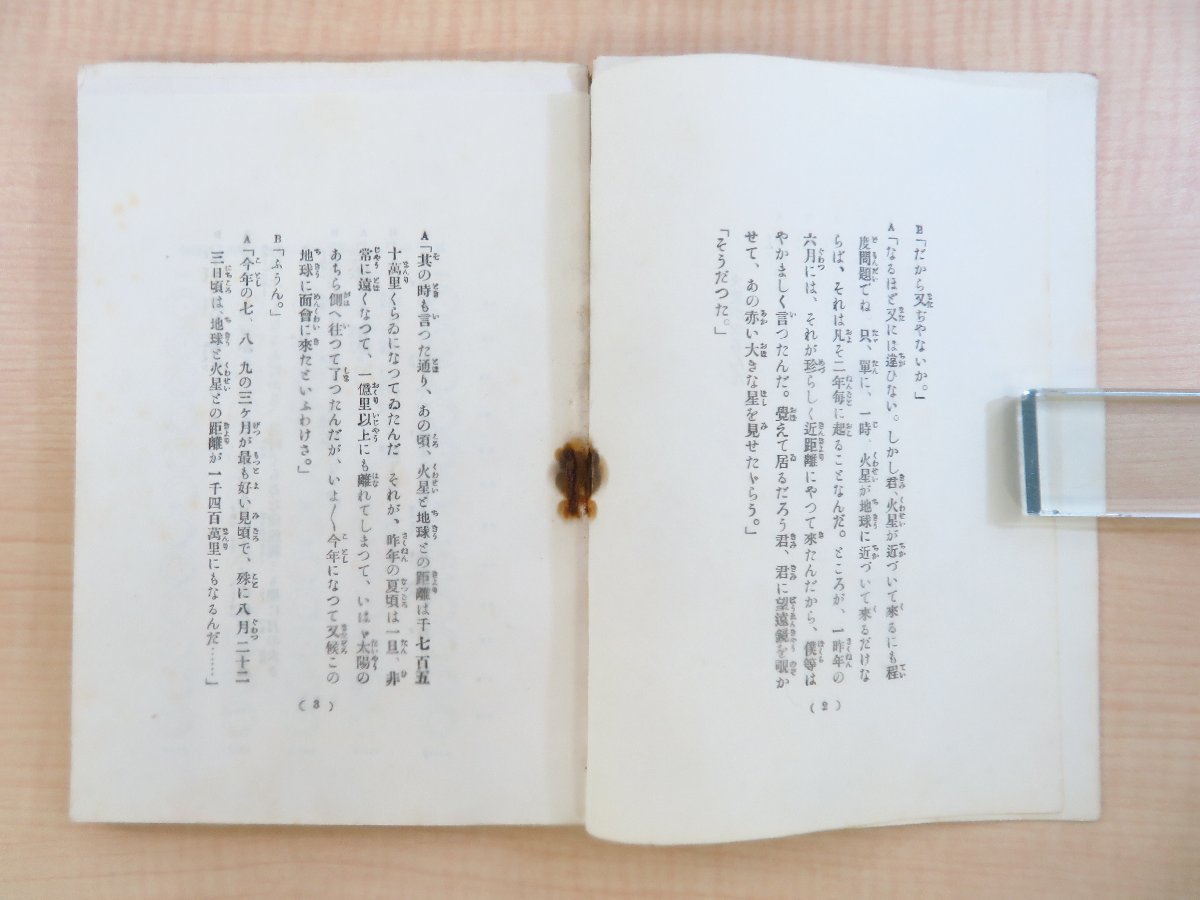 B「だから又ぢやないか。」
A「なるほど又には違ひない。しかし君、火星が近づいて來るにも程
度問題でね 只、單に、一時、火星が地球に近づいて來るだけな
らば、それは凡そ二年毎に起ることなんだ。ところが、一昨年の
六月には、それが珍らしく近距離にやつて來たんだから、僕等は
やかましく言つたんだ。覺えて居るだろう君、君に望遠鏡を覗か
せて、あの赤い大きな星を見せたゞらう。」
「そうだつた。」
(2)
A「其の時も言つた通り、あの頃、火星と地球との距離は千七百五
十萬里くらゐになつてゐたんだ それが、昨年の夏頃は一旦、非
常に遠くなつて、一億里以上にも離れてしまつて、いはゞ太陽の
あちら側へ往つて了つたんだが、いよ〳〵今年になつて又候この
地球に面會に來たといふわけさ。」
B「ふうん。」
A「今年の七、八 九の三ヶ月が最も好い見頃で、殊に八月二十二
三日頃は、地球と火星との距離が一千四百萬里にもなるんだ……」
(3)